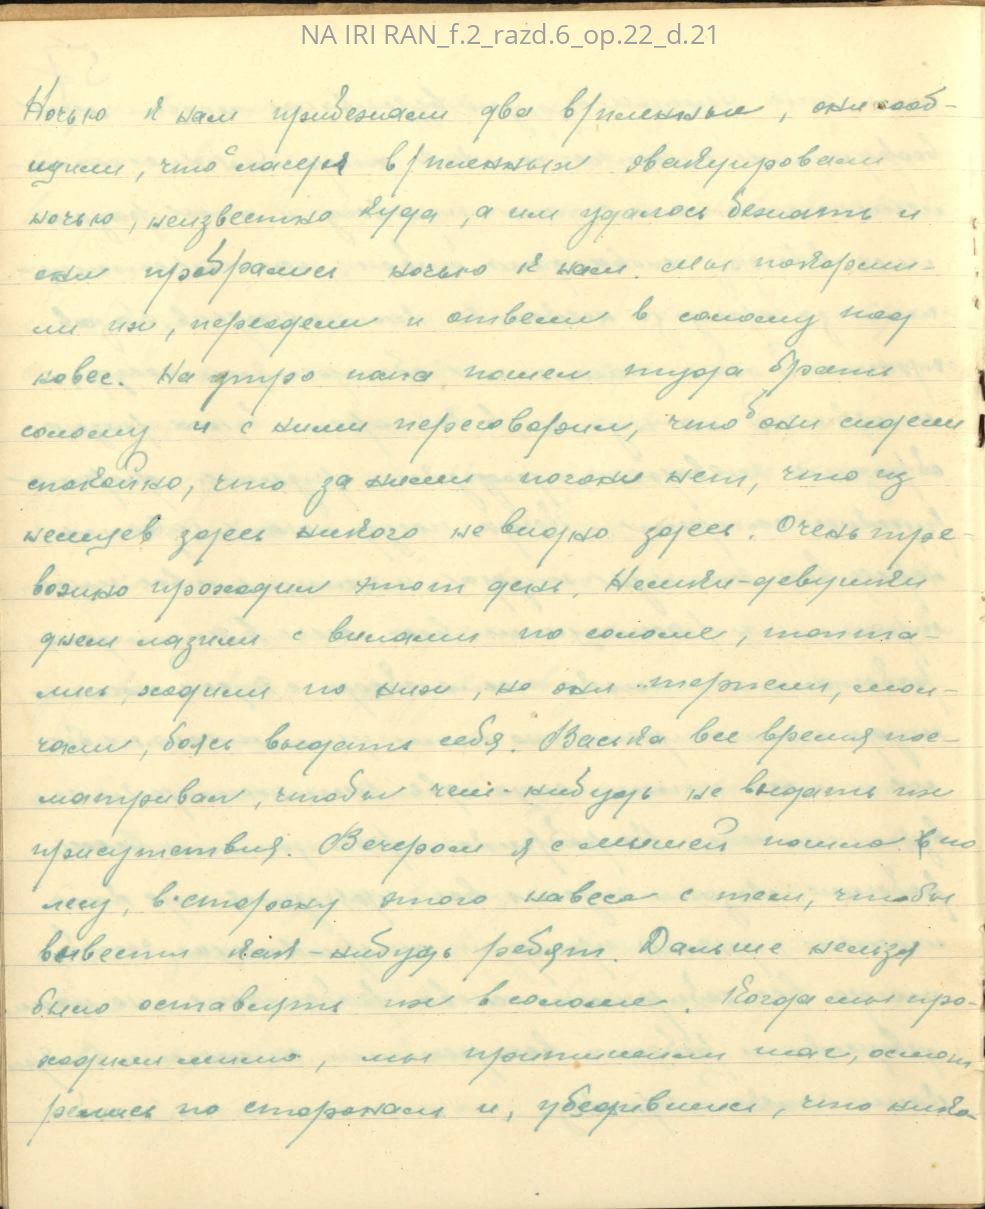 NA IRI RAN_f.2_razd.6_op.22_d.21
Ночью к нам прибежали два в/пленные, они сооб-
щили, что с лагеря в/пленных эвакуировали
ночью, неизвестно куда, а им удалось бежать и
они пробрались ночью к нам. Мы покорми-
ли их, переодели и отвели в солому под
навес. На утро папа пошел туда брать
солому и с ними переговорил, чтоб они сидели
спокойно, что за ними погони нет, что из
немцев здесь никого не видно здесь. Очень тре-
вожно проходил этот день. Немки-девушки
днем лазили с вилами по соломе, топта-
лись, ходили по ним, но они терпели, мол-
чали, боясь выдать себя. Васька все время пос-
матривал, чтобы чем-нибудь не выдать их
присутствия. Вечером я с Мишей пошла по
лесу, в сторону этого навеса с тем, чтобы
вывести как-нибудь ребят. Дальше нельзя
было оставлять их в соломе. Когда мы про-
ходили мимо, мы шаг, осмот
релись по сторонам и, убедившись, что нико